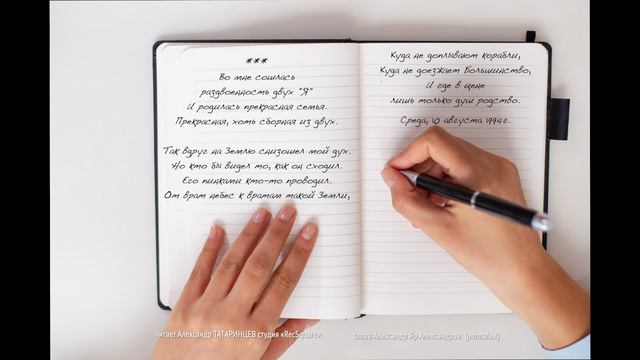 ***
Во мне сошлась
раздвоенность двух "Я"
И родилась прекрасная семья.
Прекрасная, хоть сборная из двух.
Так вдруг на Землю снизошел мой дух.
Но кто бы видел то, как он сходил.
Его пинками кто-то проводил.
От врат небес к вратам такой Земли,
Куда не доплывают корабли,
Куда не доезжает Большинство,
И где в цене
лишь только душ родство.
Среда, 10 августа 1994 г.
читает Александр ТАТАРИНЦЕВ студия «RecSquare»
слова Александр Яр Александров (pointalex)